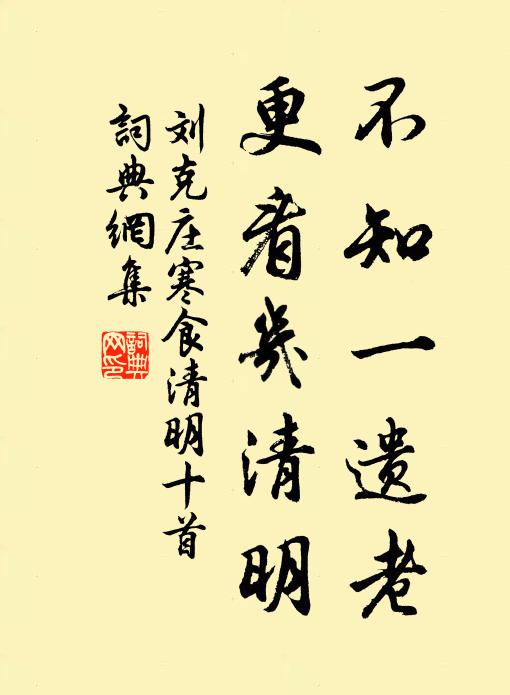 不知一遗老
更看几清明
刘克庄寒食清明十首
詞典網集
詞典網印